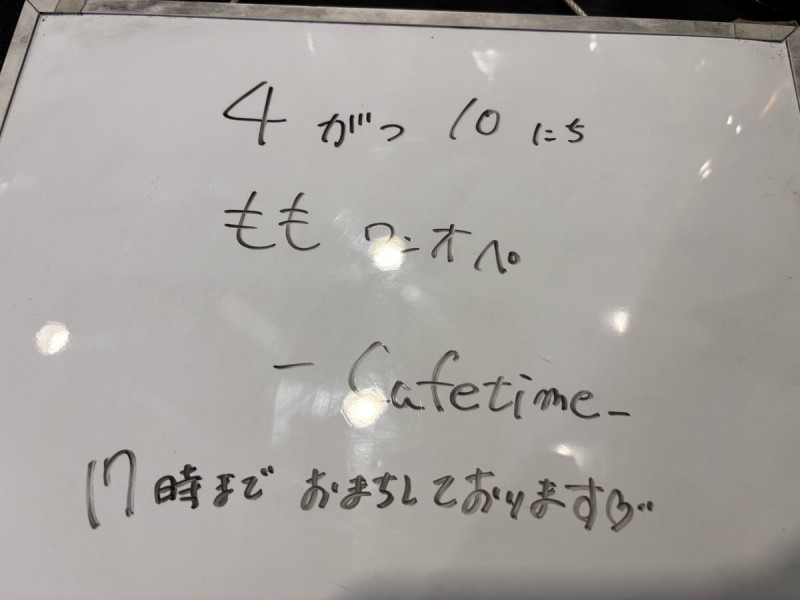 4がつ10にち
もも ワンオペ
- Cafetime -
17時まで おまちしております